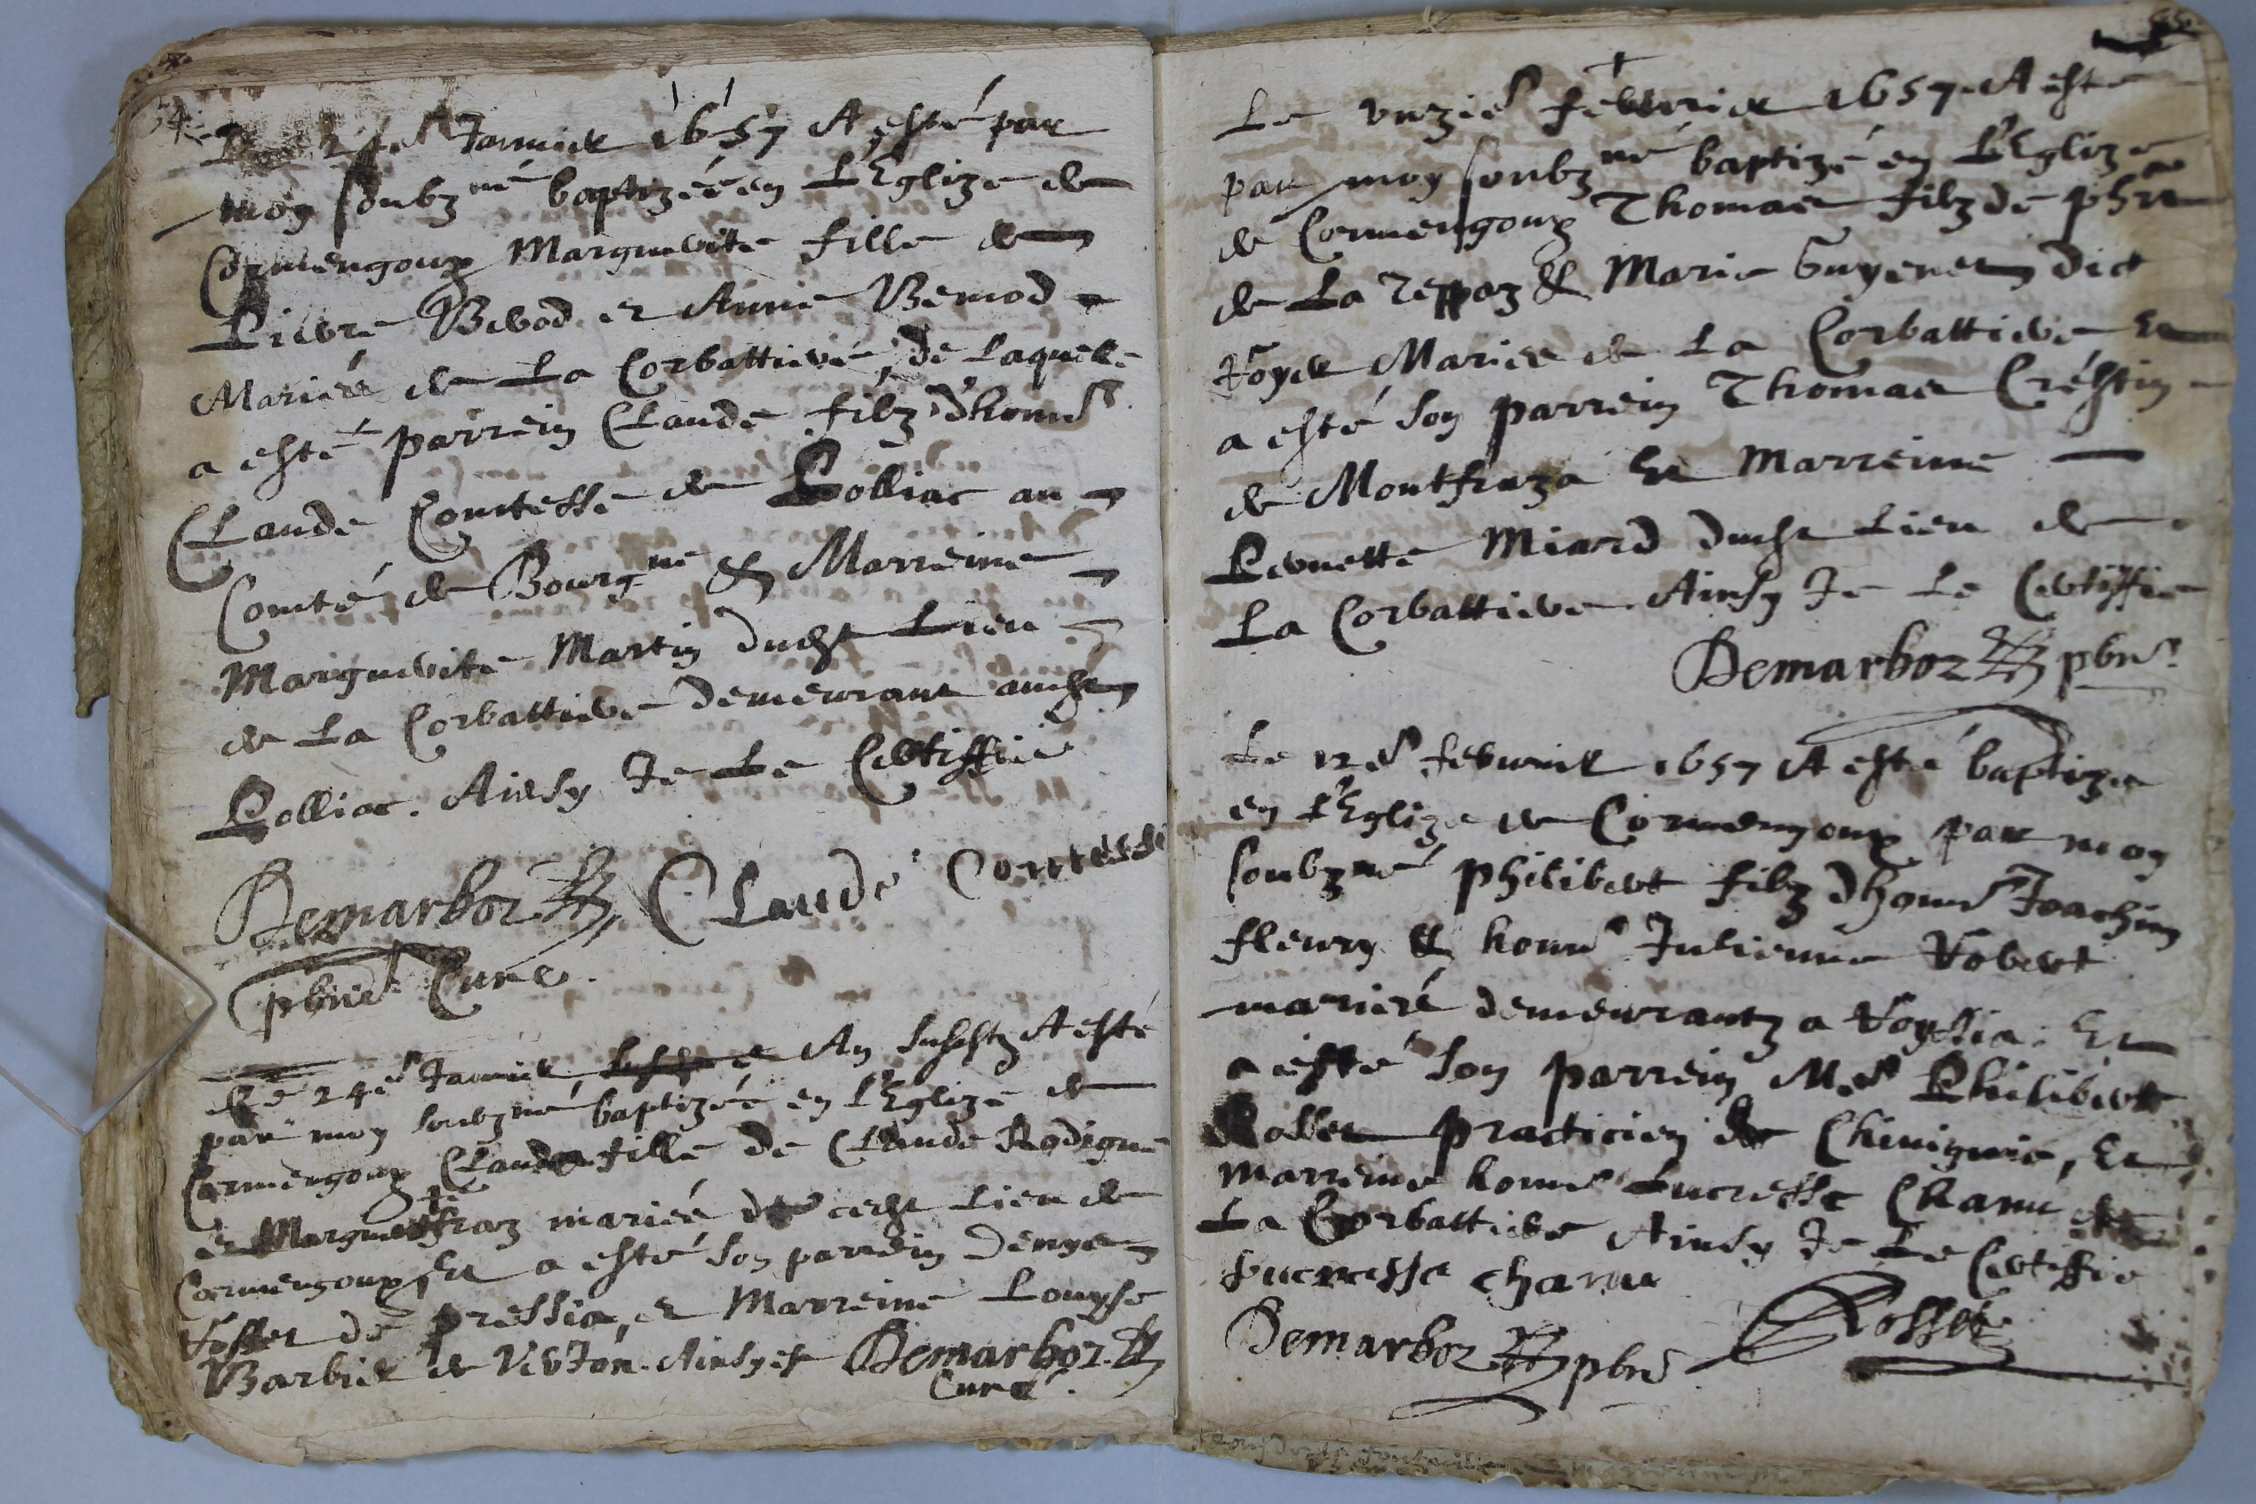 54
Le 24e Janvier 1657 A esté par
moy soubzné baptizée en L'Eglize de
Cormengoux Marguerite fille de
Pierre Berod et Anne Bernod
Mariés de La Corbattiere, de Laquelle
a esté parrein Claude filz d'honne
Claude Comtesse de Polliac au
Comté de Bourgne & Marreine
Marguerite Martin ducht Lieu
de La Corbattiere demeurant aucht
Polliac. Ainsy Je Le Certiffie
Demarboz Claude Comtesse
pbre Curé.
Le 24e Janvier An suscht A esté
par moy soubzné baptizée en L'Eglize de
Cormengoux Claude fille de Claude Rodigue
et Margueritte fraz mariés de cecht Lieu de
Cormengoux, Et a esté son parrein Denys
Rosset de pressia, et Marreine Louyse
Barbier de Verjon. Ainsy est Demarboz
Curé.
Le unzie febvrier 1657 A esté
par moy soubzné baptizé en L'Eglize
de Cormengoux Thomas filz de phe
de La Teppaz & Marie Guyenet dict
Royer Mariés de La Corbattiere Et
a esté son parrein Thomas Créstin
de Montfraza Et Marreine
Pernette Miard ducht Lieu de
La Corbattiere Ainsy Je Le Certiffie
Demarboz pbre
Le 12e febvrier 1657 A esté baptize
en L'Eglize de Cormengoux par moy
soubzné philibert filz d'honne Joachim
fleury & honne Julienne Robert
mariés demeurantz a Royssia. Et
a esté son parrein Me Philibert
Rosset practicien de Chevignie, Et
Marreine honne Lucresse Charu de
La Corbattiere Ainsy Je Le Certiffie
Lucresse charue
Demarboz pbre Rosset